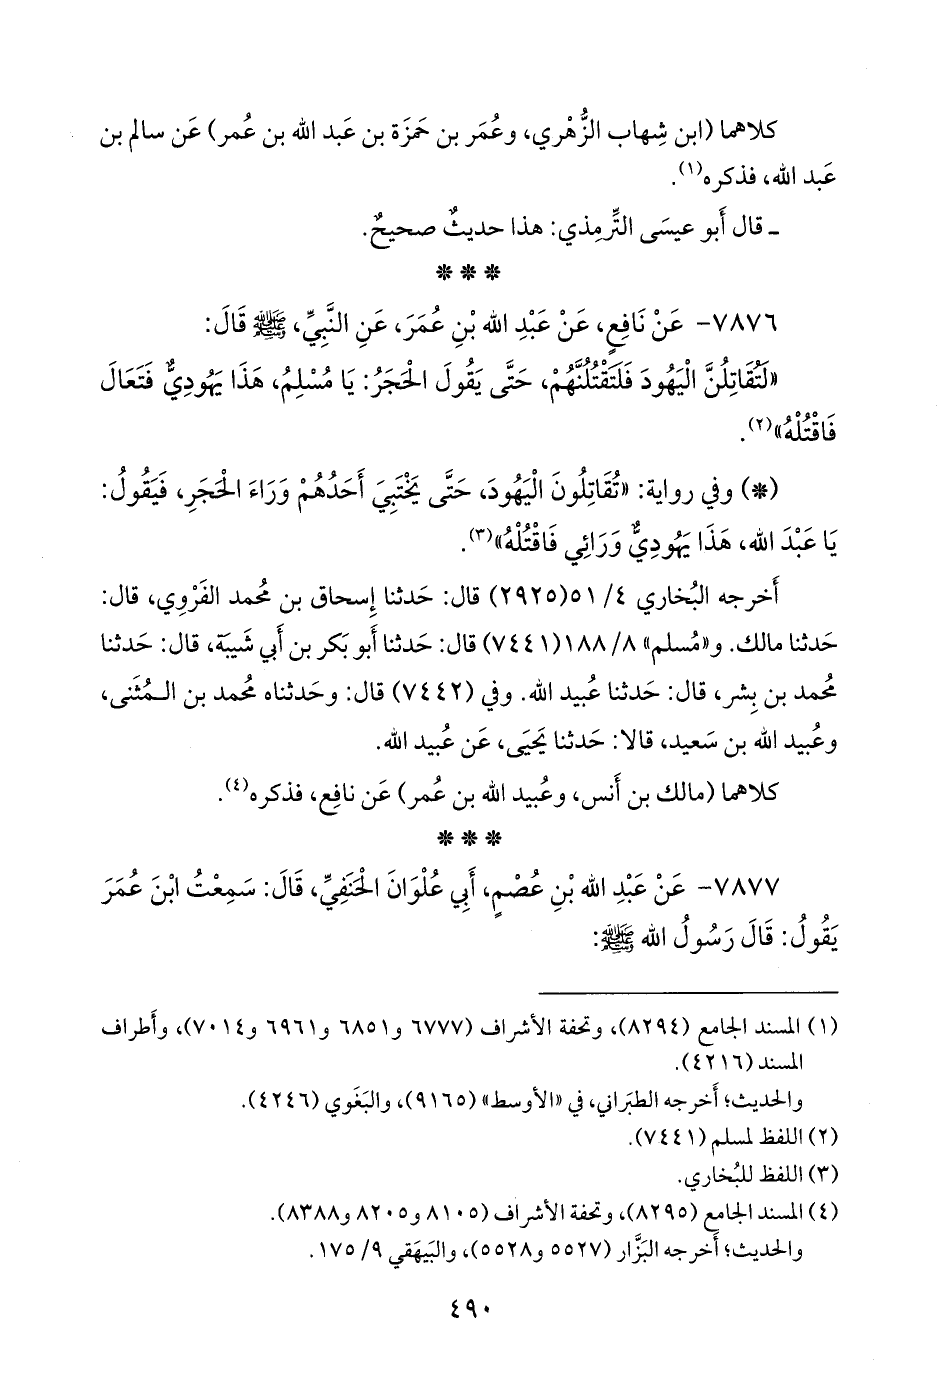 كلاهما (ابن شِهاب الزُّهْري، وعُمَر بن حَمزَة بن عَبد الله بن عُمر) عَن سالم بن
عَبد الله، فذكره(١).
ـ قال أَبو عيسَى التِّرمِذي: هذا حديثٌ صحيحٌ.
* * *
٧٨٧٦- عَنْ نَافِعٍ، عَنْ عَبْدِ الله بْنِ عُمَرَ، عَنِ النَّبِيِّ، ﷺ قَالَ:
«لَتُقَاتِلُنَّ الْيَهُودَ فَلَتَقْتُلُنَّهُمْ، حَتَّى يَقُولَ الْحَجَرُ: يَا مُسْلِمُ، هَذَا يَهُودِيٌّ فَتَعَالَ
فَاقْتُلْهُ»(٢).
(*) وفي رواية: «تُقَاتِلُونَ الْيَهُودَ، حَتَّى يَخْتَبِيَ أَحَدُهُمْ وَرَاءَ الْحَجَرِ، فَيَقُولُ:
يَا عَبْدَ الله، هَذَا يَهُودِيٌّ وَرَائِي فَاقْتُلْهُ»(٣).
أَخرجه البُخاري ٤/ ٥١(٢٩٢٥) قال: حَدثنا إِسحاق بن مُحمد الفَرْوِي، قال:
حَدثنا مالك. و«مُسلم» ٨/ ١٨٨(٧٤٤١) قال: حَدثنا أَبو بَكر بن أَبي شَيبَة، قال: حَدثنا
مُحمد بن بِشر، قال: حَدثنا عُبيد الله. وفي (٧٤٤٢) قال: وحَدثناه مُحمد بن الـمُثَنى،
وعُبيد الله بن سَعيد، قالا: حَدثنا يَحيَى، عَن عُبيد الله.
كلاهما (مالك بن أَنس، وعُبيد الله بن عُمر) عَن نافِع، فذكره(٤).
* * *
٧٨٧٧- عَنْ عَبْدِ الله بْنِ عُصْمٍ، أَبِي عُلْوَانَ الْحَنَفِيِّ، قَالَ: سَمِعْتُ ابْنَ عُمَرَ
يَقُولُ: قَالَ رَسُولُ الله ﷺ:
(١) المسند الجامع (٨٢٩٤)، وتحفة الأشراف (٦٧٧٧ و٦٨٥١ و٦٩٦١ و٧٠١٤)، وأَطراف
المسند (٤٢١٦).
والحديث؛ أَخرجه الطبَراني، في «الأوسط» (٩١٦٥)، والبَغَوي (٤٢٤٦).
(٢) اللفظ لمسلم (٧٤٤١).
(٣) اللفظ للبُخاري.
(٤) المسند الجامع (٨٢٩٥)، وتحفة الأشراف (٨١٠٥ و٨٢٠٥ و٨٣٨٨).
والحديث؛ أَخرجه البَزَّار (٥٥٢٧ و٥٥٢٨)، والبَيهَقي ٩/ ١٧٥.
٤٩٠